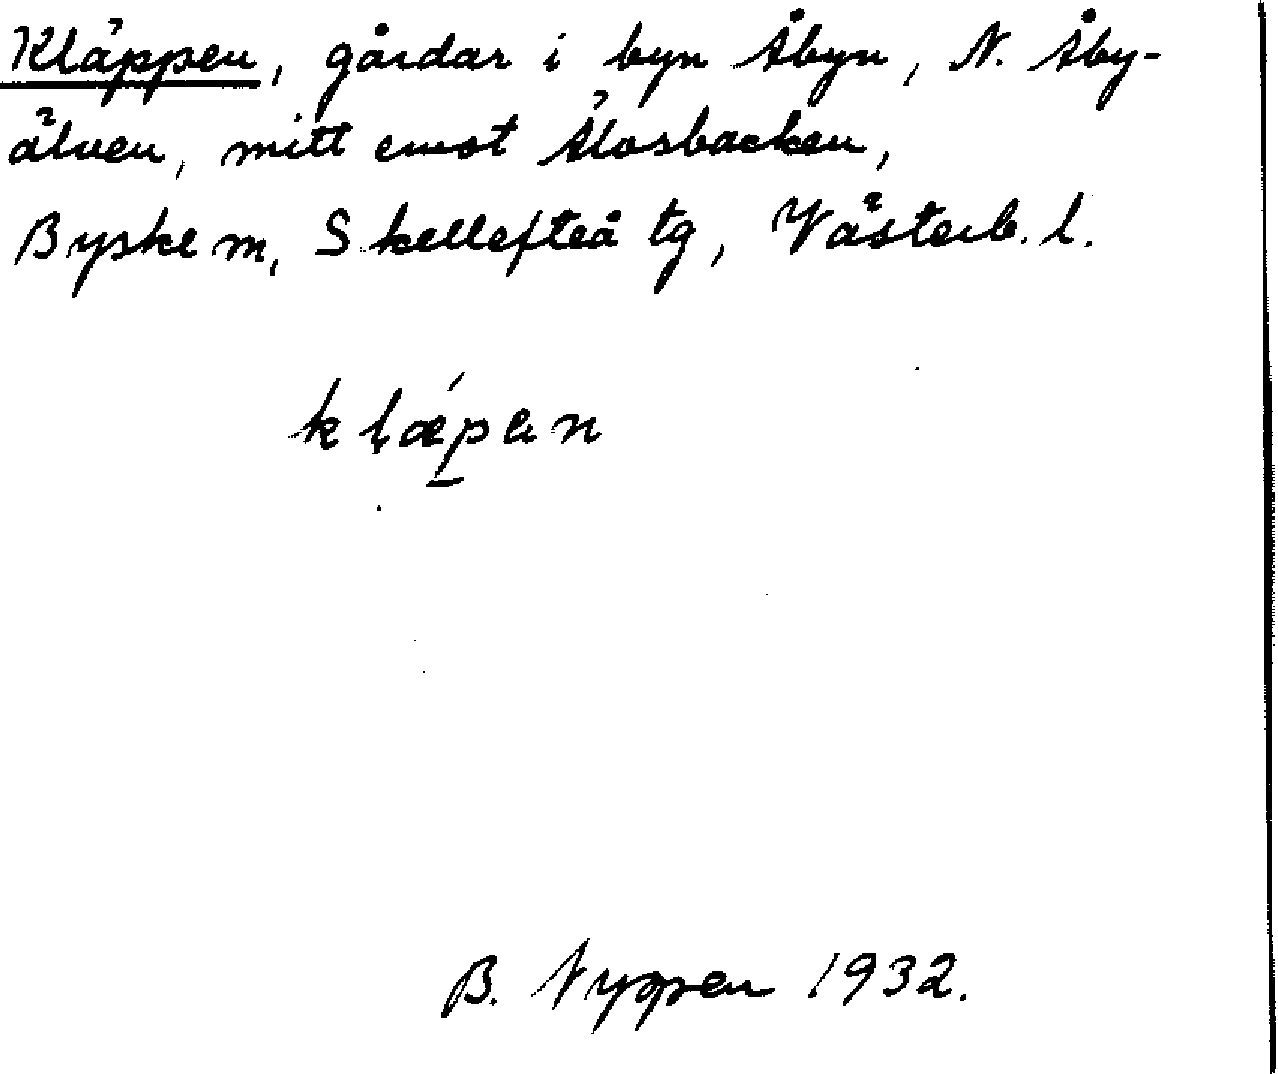 Kläppen, gårdar i byn Åbyn, N. Åby-
älven, mitt emot Älosbacken,
Byske m, Skellefteå tg, Västerb. l.
klæ´pen
B. Nyppen 1932.